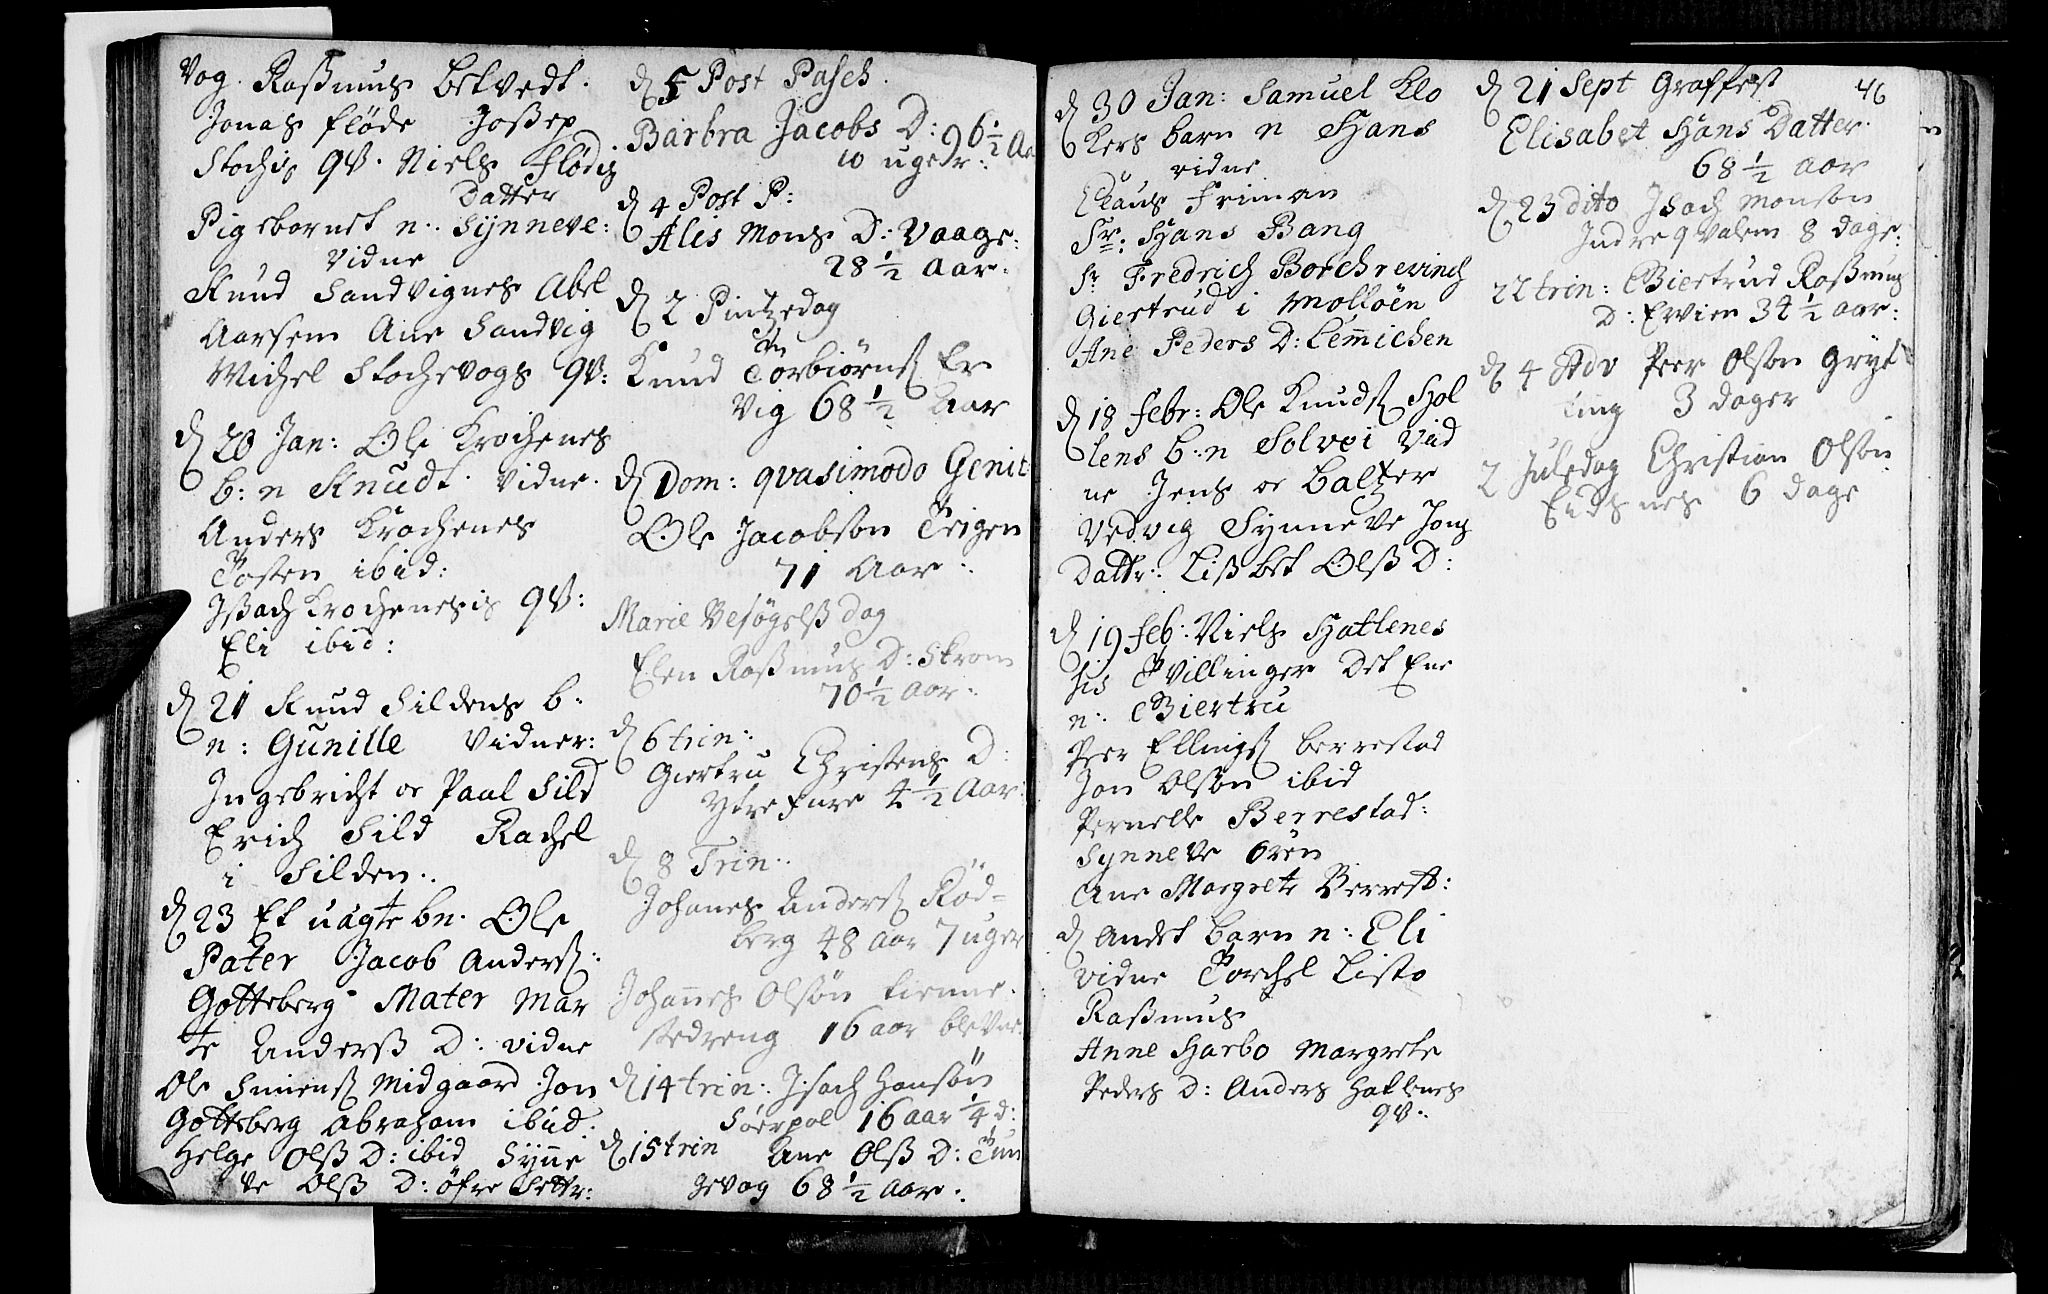 Vog. Raßmus Betvedt.
Jonas Fløde Joßep
Stochs qv. Niels Flødes
Datter
Pigebornet n. Synneve:
Vidne
Knud Sandvignes Abel
Aarsem Ane Sandvig
Michel Stochevogs qv:
d 20 Jan: Ole Krochenes
b: n Knudt. Vidne.
Anders Krochenes
Tosten ibid:
Jßach Krochenesis qv:
Eli ibid:
d 21 Knud Sildens b.
n: Gunille Vidner:
Ingebricht oc Paal Sild
Erich Sild Rachel
i Silden.
d 23 Et uägte bn. Ole
Pater Jacob Anders:
Gotteberg Mater Mar
te Anderß D: vidne
Ole Simens Midgaard Jon
Gotteberg Abraham ibid.
Helge Olß D: ibid Synne
ve Olß D: öfre Settr:
d 5 Post Pasch.
Barbra Jacobs D: 96 1/2 Aa
10 uger:
d 4 Post P:
Alis Mons D: Vaage:
28 1/2 Aar.
d 2 Pintzedag
Knud Torbiørns Er
vig 68 1/2 Aar
d Dom: qvasimodo Genit
Ole Jacobson Teigen
71 Aar.
Marie Besøgelß dag
Elen Raßmus D: Strom
70 1/2 Aar.
d 6 trin:
Giertru Christens D:
Ytre Fure 4 1/2 Aar:
d 8 Trin:
Johanes Anders Rød=
berg 48 aar 7 uger
Johannes Olsön tienne.
stedreng 16 aar
d 14 trin: Jsach Hansön
Söerpol 16 aar 1/4 d:
d 15 trin Ane Olß D: Tun
gevog 68 1/2 Aar.
46
d 30 Jan: Samuel Klo
kers barn n Hans
vidne
Claus Friman
Sr: Hans Bang
Sr Fredrich Borchrevinch
Giertrud i Molløen
Ane Peders D: Lemmichen
d 18 Febr: Ole Knuds Hol
lens b: n Solvei Vid
ne Jens oc Baltzer
Vedvig Synneve Jons
Dattr: Lißbet Olß D:
d 19 Feb: Niels Hatlenes
sis Tvillinger Det Ene
n: Giertru
Peer Ellings Berrestad
Jon Olson ibid
Pernelle Berrestad:
Synneve Ören
Ane Margrete Berrest:
d Andet barn n: Eli
vidne Torchel Listo
Raßmus
Anne Harbo Margrete
Peders D: Anders Hatlenes
qv.
d 21 Sept Graffest
Elisabet Hans Datter.
68 1/2 aar
d 23 dito Jsach Monson
Indre qvalem 8 dage:
22 trin: Giertrud Raßmus
D: Ervien 34 1/2 aar:
d 4 Adv Peer Olson Gryt
ting 3 dager
2 Juledag Christian Olson
Eidsnes 6 dage